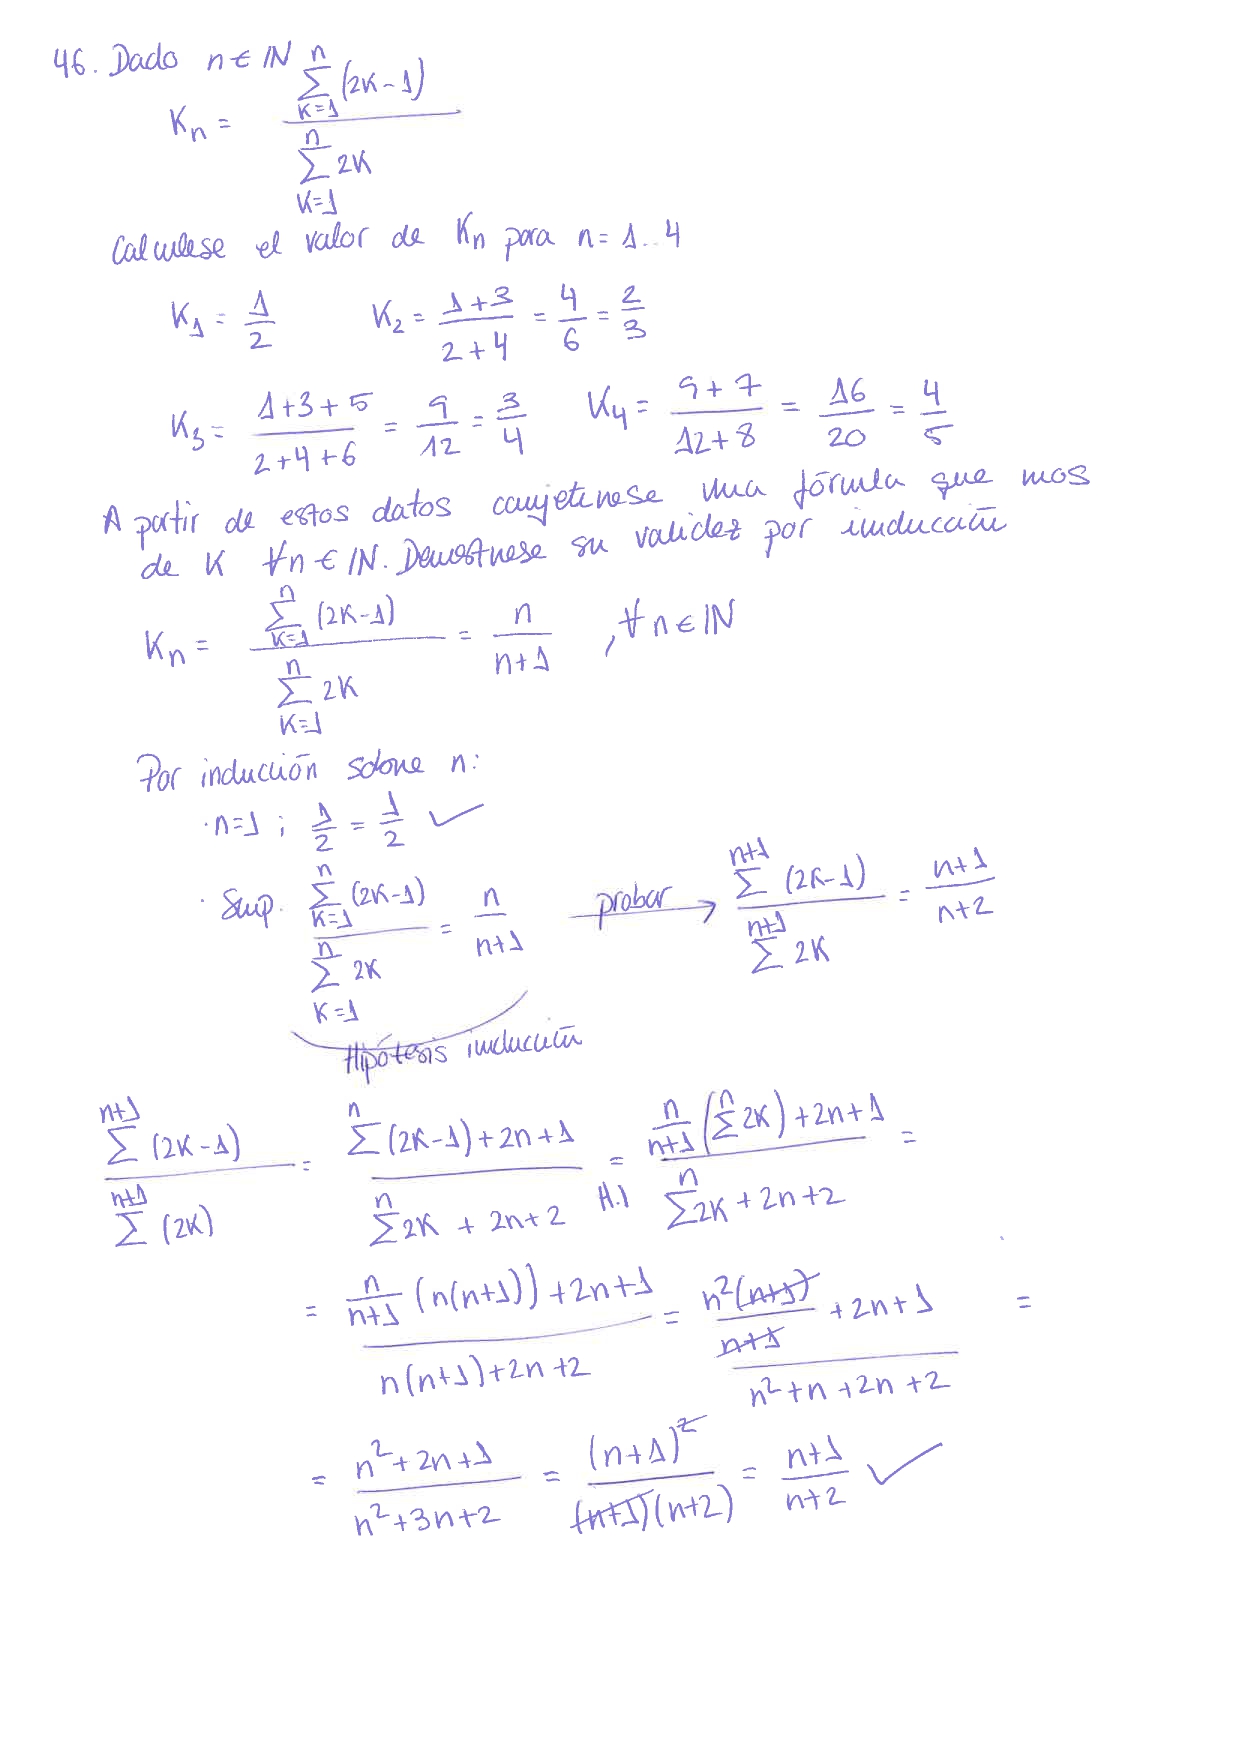 46. Dado n ∈ IN
Kn = \frac{\sum_{K=1}^{n} (2K-1)}{\sum_{K=1}^{n} 2K}
Calculese el valor de Kn para n = 1..4
K1 = \frac{1}{2}    K2 = \frac{1+3}{2+4} = \frac{4}{6} = \frac{2}{3}
K3 = \frac{1+3+5}{2+4+6} = \frac{9}{12} = \frac{3}{4}    K4 = \frac{9+7}{12+8} = \frac{16}{20} = \frac{4}{5}
A partir de estos datos conjeturese una fórmula que mos
de K ∀n ∈ IN. Demostrese su validez por inducción
Kn = \frac{\sum_{K=1}^{n} (2K-1)}{\sum_{K=1}^{n} 2K} = \frac{n}{n+1} , ∀n ∈ IN
Por indución sobre n:
· n=1 ; \frac{1}{2} = \frac{1}{2} ✓
· Sup. \frac{\sum_{K=1}^{n} (2K-1)}{\sum_{K=1}^{n} 2K} = \frac{n}{n+1} probar → \frac{\sum^{n+1} (2K-1)}{\sum^{n+1} 2K} = \frac{n+1}{n+2}
Hipótesis inducción
\frac{\sum^{n+1} (2K-1)}{\sum^{n+1} (2K)} = \frac{\sum^{n} (2K-1)+2n+1}{\sum^{n} 2K + 2n+2} = H.I \frac{\frac{n}{n+1} (\sum^{n} 2K)+2n+1}{\sum^{n} 2K + 2n+2} =
= \frac{\frac{n}{n+1} (n(n+1))+2n+1}{n(n+1)+2n+2} = \frac{\frac{n^2(n+1)}{n+1} +2n+1}{n^2+n+2n+2} =
= \frac{n^2+2n+1}{n^2+3n+2} = \frac{(n+1)^2}{(n+1)(n+2)} = \frac{n+1}{n+2} ✓